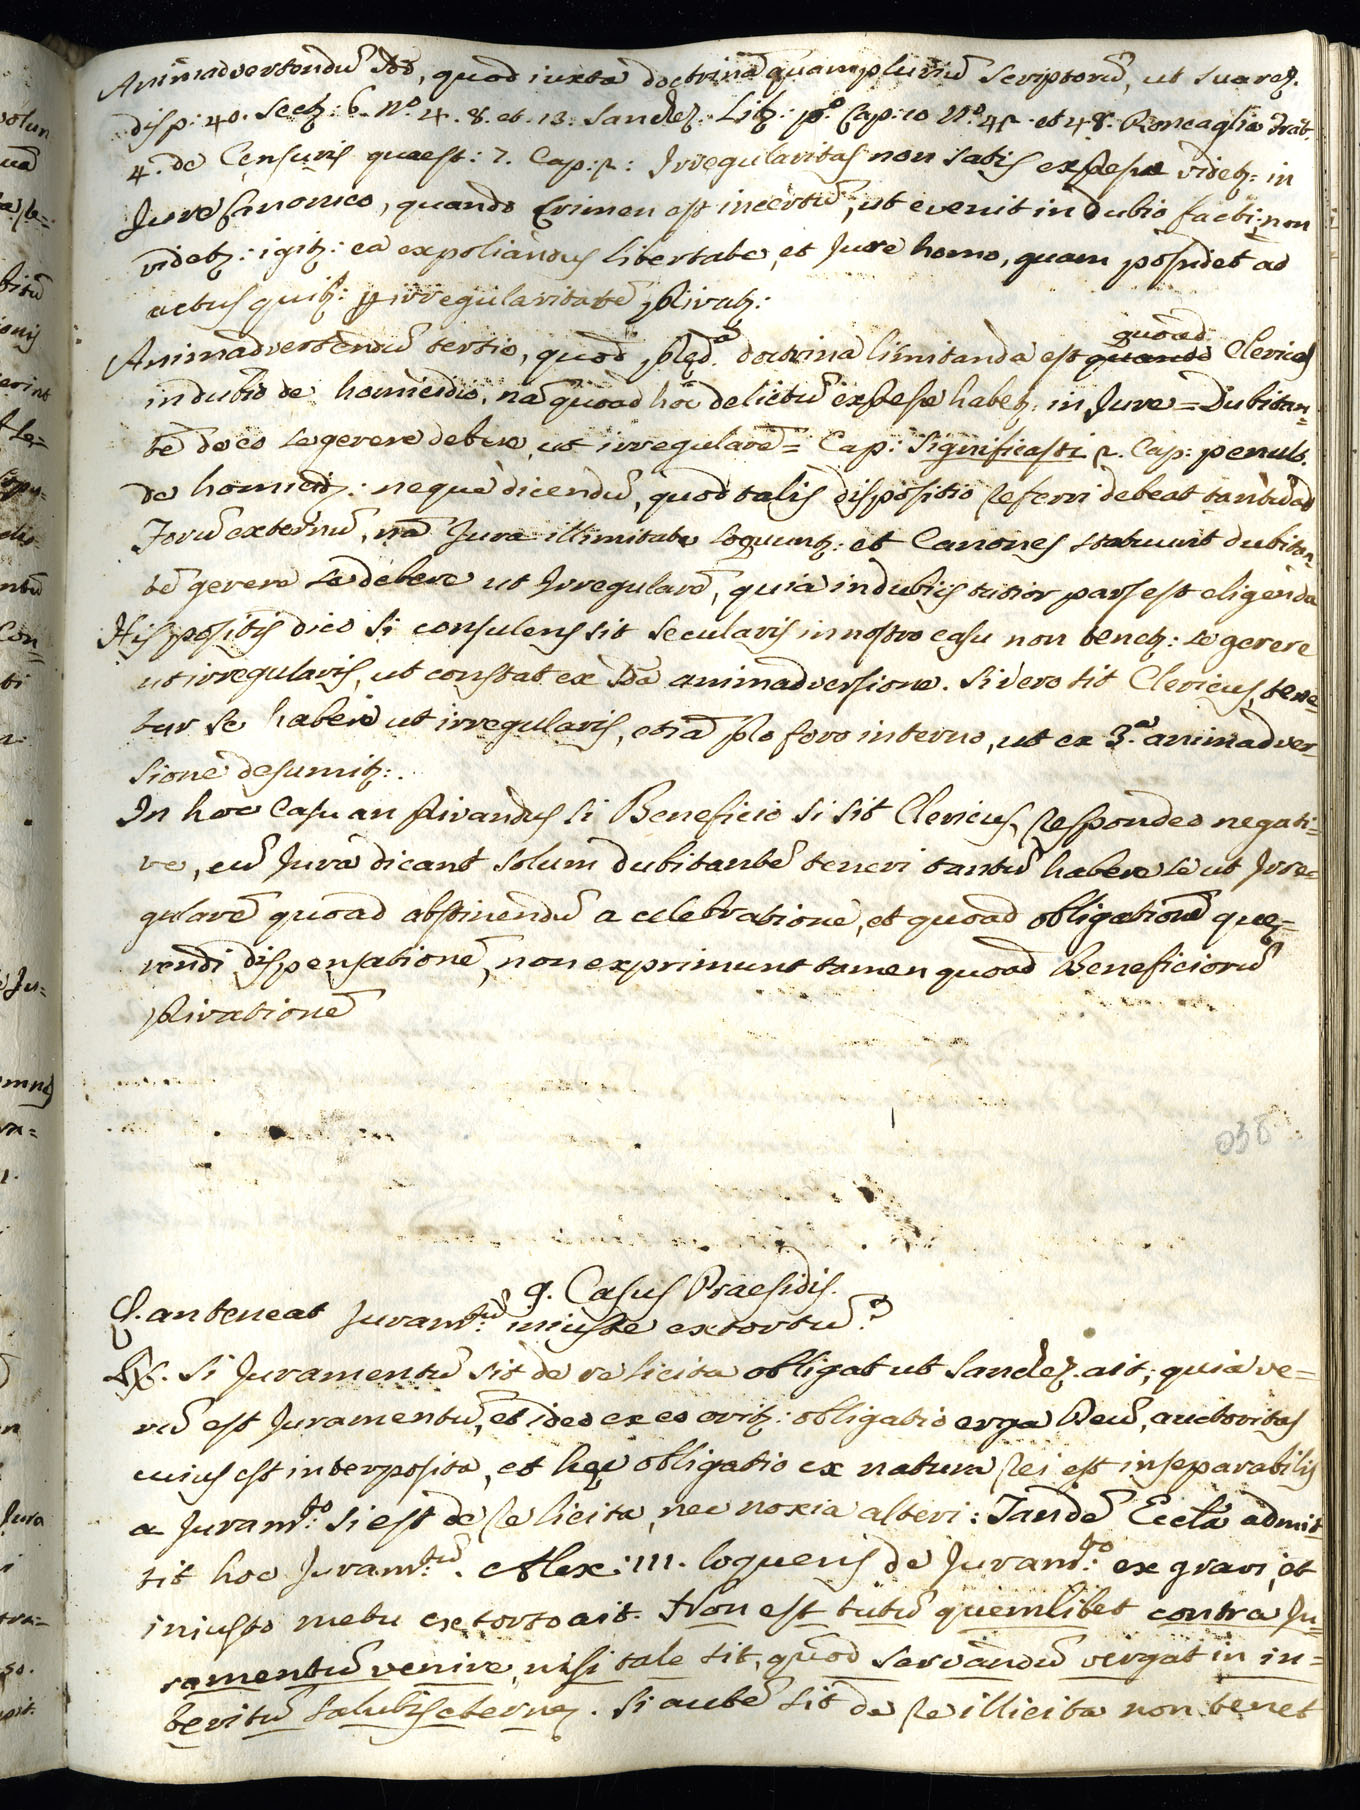 Animadvertendũ 2do, quod iuxta doctrinã quampluriũ scriptorũ, ut Suarez.
disp: 40. sect: 6. No. 4. 8. et. 13. Sanchez. Lib: po. Cap: 10 No. 42. et 48. Roncaglia trat.
4. de Censuris quaest: 7. Cap: 2: Irregularitas non satis expresse videtz: in
Jure Canonico, quando Crimen est incertũ, ut evenit in dubio facti: non
videtz: igitz: eã expoliandus libertate, et Jure homo, quam possidet ad
actus quibz: p irregularitatẽ privatz:
Animadvertendũ tertio, quod prędã doctrina limitanda est quoad Clericos
quando
in dubio de homicidio, nã quoad hoc delictũ expresse habetz: in Jure = Dubitan=
tẽ de eo se gerere debere, ut irregularẽ = Cap: Significasti 2. Cap: penult.
de homicid: neque dicendũ, quod talis dispositio referri debeat tantũ ad
Forũ externũ, nã Jura illimitate loquuntz: et Canones statuunt dubitan=
tẽ gerere se debere ut Irregularẽ, quia in dubiis tutior pars est eligenda
His positis dico si consulens sit secularis in nostro casu non tenetz: se gerere
ut irregularis, ut constat ex 2da animadversione. Si vero sit Clericus, tene=
tur se habere ut irregularis, etiã pro foro interno, ut ex 3.a animadver=
sione desumitz:.
In hoc Casu an privandus si Beneficio si sit Clericus, respondeo negati=
ve, cũ Jura dicant solum dubitantẽ teneri tantũ habere se ut Irre=
gularẽ quoad abstinendũ a celebratione, et quoad obligationẽ quę=
rendi dispensationẽ, non exprimunt tamen quoad Beneficiorũ
privationẽ
038
9. Casus Praesidis.
Q. an teneat Juram:tũ iniuste extortũ?
Rx. Si Juramentũ sit de re licita obligat ut Sanchez. ait; quia ve=
rũ est Juramentũ, et ideo ex eo oritz: obligatio erga Deũ, auctoritas
cuius est interposita, et hęc obligatio ex natura rei est inseparabilis
a Juram:to si est de re licita, nec noxia alteri: Tandẽ Eccla admit
tit hoc Juram:tũ. Alex: III. loquens de Juram:to ex gravi, et
iniusto metu extorto ait. Non est tutũ quemlibet contra Ju=
ramentũ venire, nisi tale sit, quod servandũ vergat in in=
teritũ salutis eternę. Si autẽ sit de re illicita non tenet